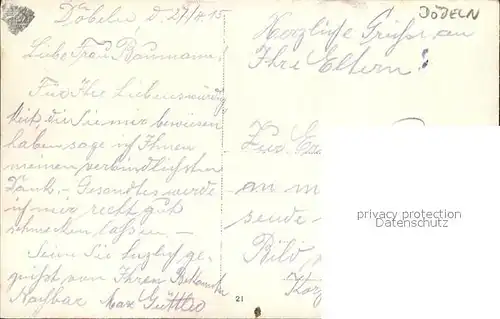 Döbeln, d. 27/4.15
DÖBELN
Liebe Frau Baumann!
Für Ihre Liebenswürdig
keit, die Sie mir bewiesen
haben sage ich Ihnen
meinen verbindlichsten
Dank. – Gesandtes werde
ich mir recht gut
schmecken lassen. –
Seien Sie herzlich ge-
grüßt von Ihrem
Nachbar Max
Herzliche Grüße an
Ihre Eltern!
Zur
an m
sende
Bild
21
privacy protection
Datenschutz